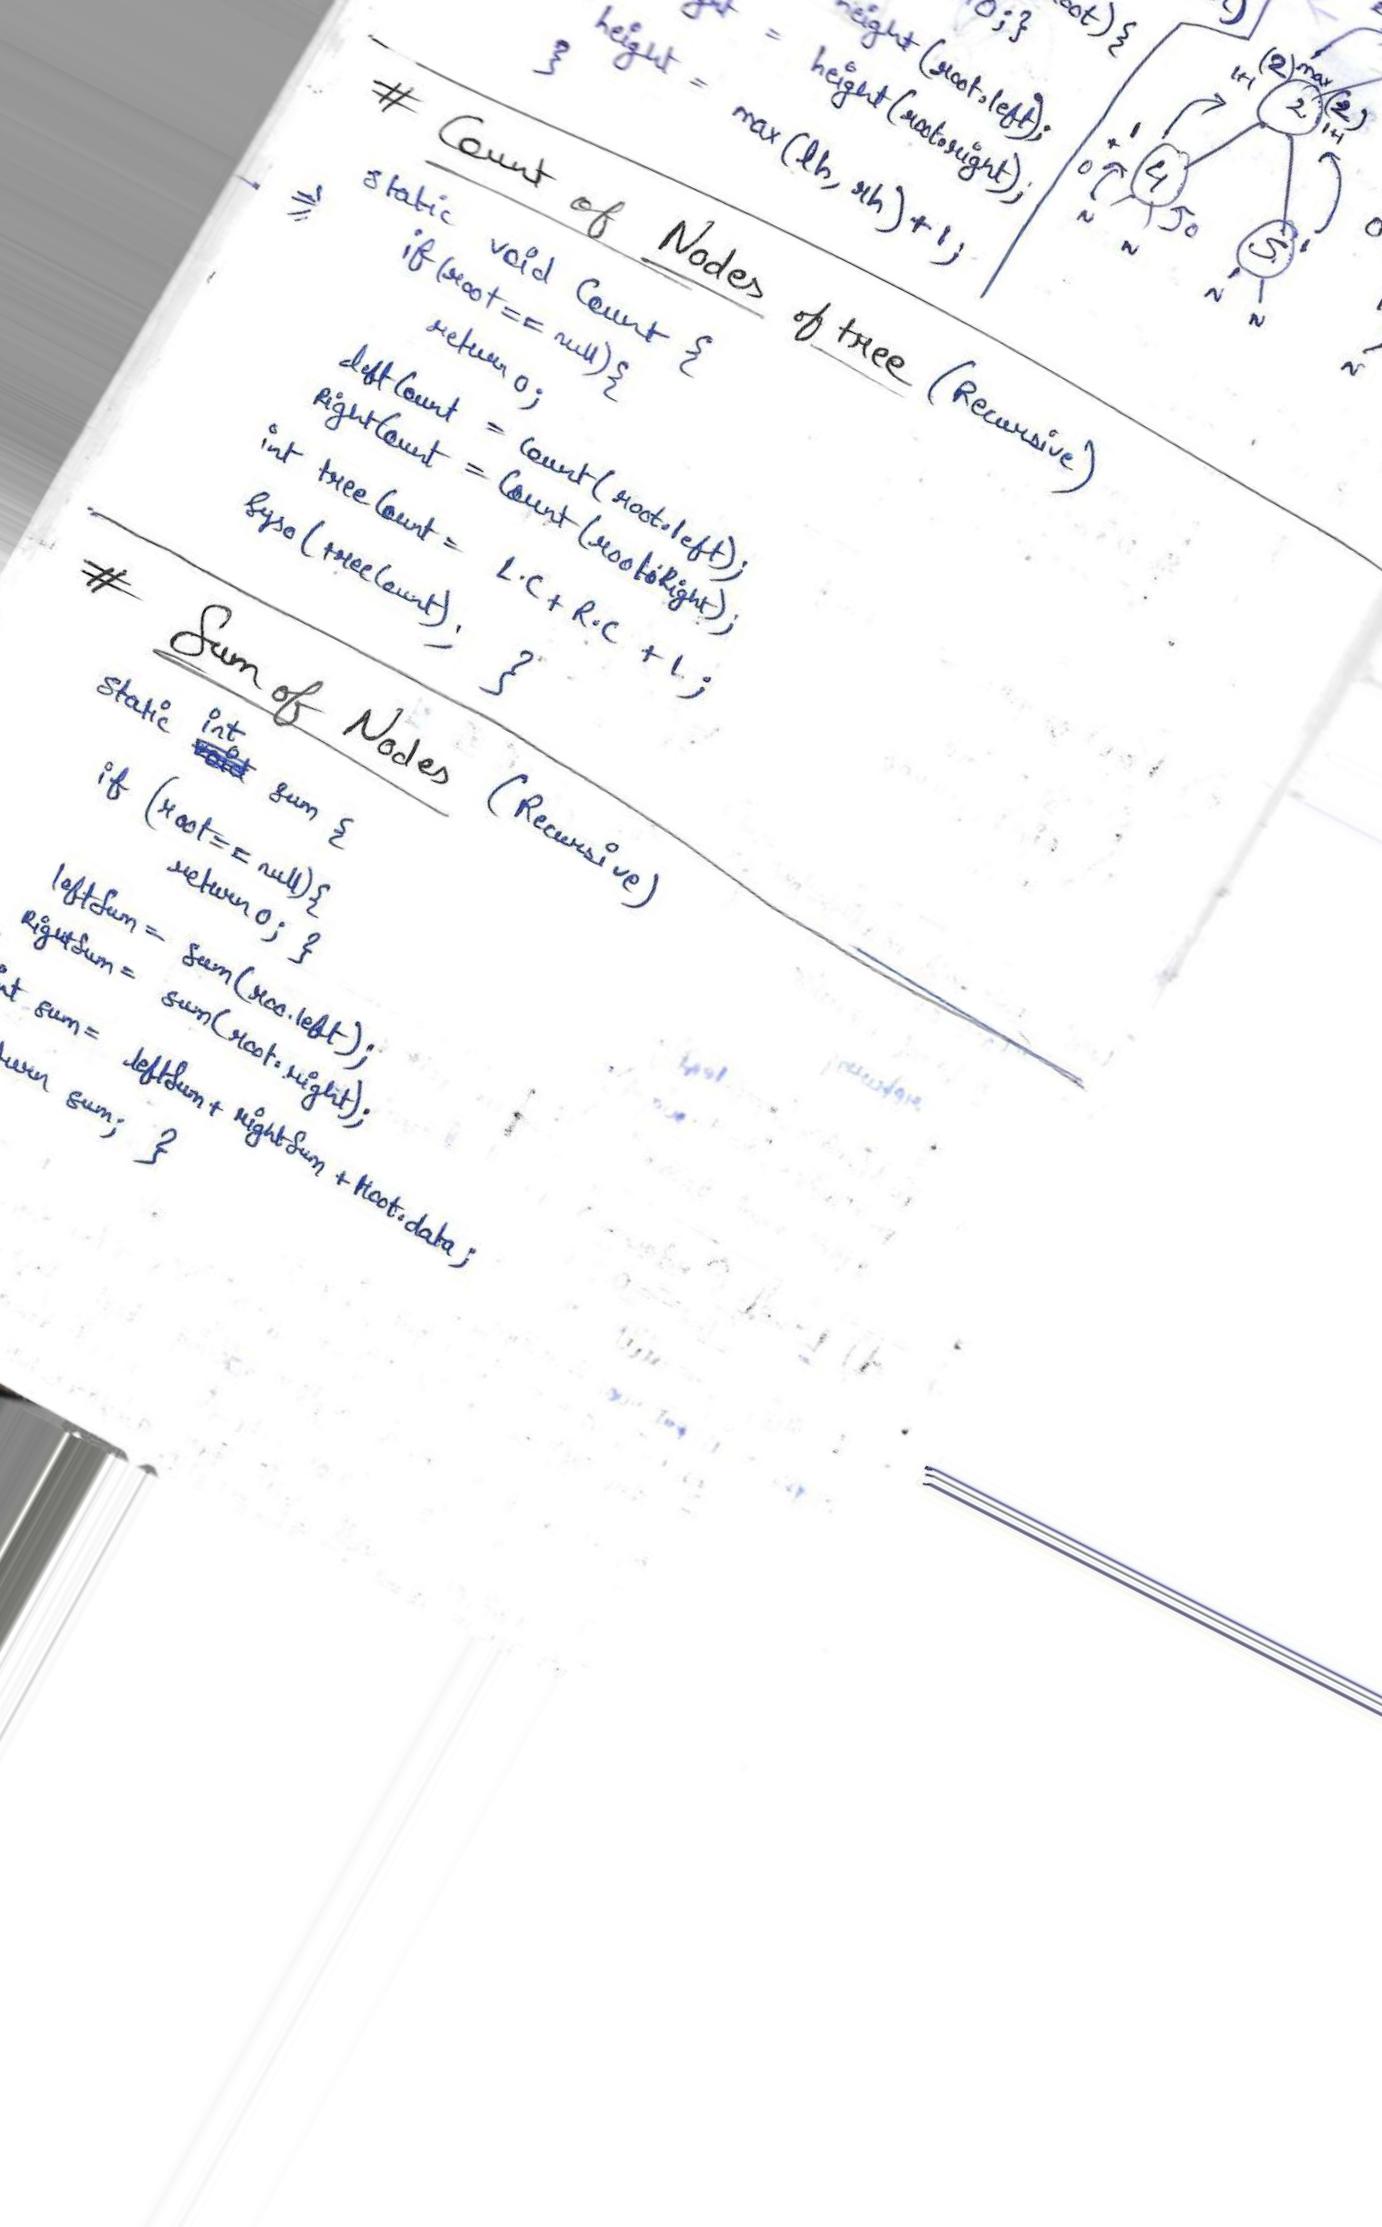 oot) {
0; }
= height (root.left);
= height (root.right);
height = max (lh, rh) + 1;
}
1+1 (2) max (2)
2 1+1
0 +1
4
N N 0
5 1
N N
N
# Count of Nodes of tree (Recursive)
⇒ static void Count {
if (root == null) {
return 0;
leftCount = Count (root.left);
RightCount = Count (root.Right);
int treeCount = L.C + R.C + 1;
Syso (treeCount);
}
# Sum of Nodes (Recursive)
static int sum {
if (root == null) {
return 0; }
leftSum = Sum (roo.left);
RightSum = sum (root.right);
nt sum = leftSum + rightSum + Root.data;
turn sum; }